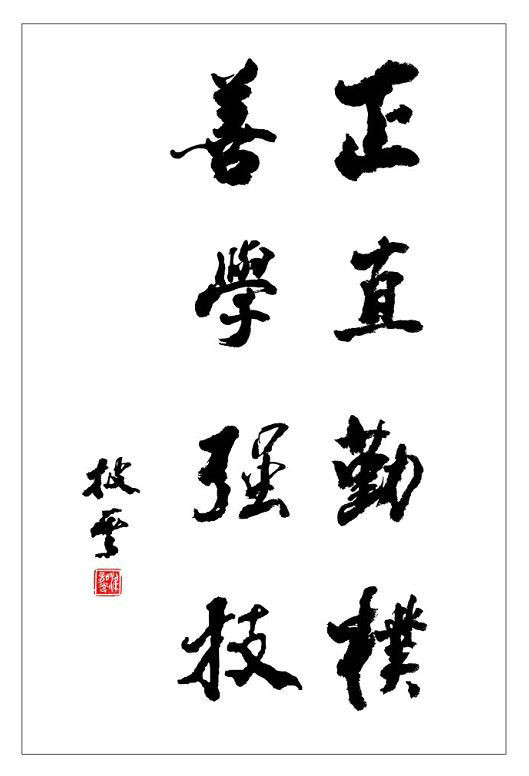 正直勤樸
善學强技
披雲